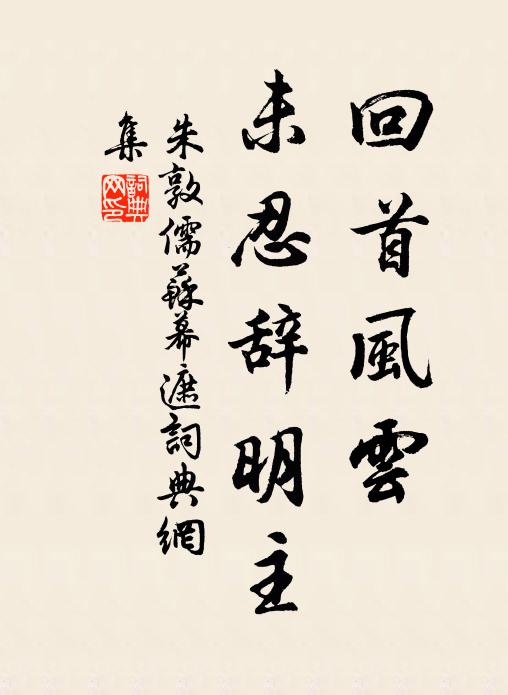 回首風雲
未忍辞明主
朱敦儒蘇幕遮詞典網
集
詞典
网印